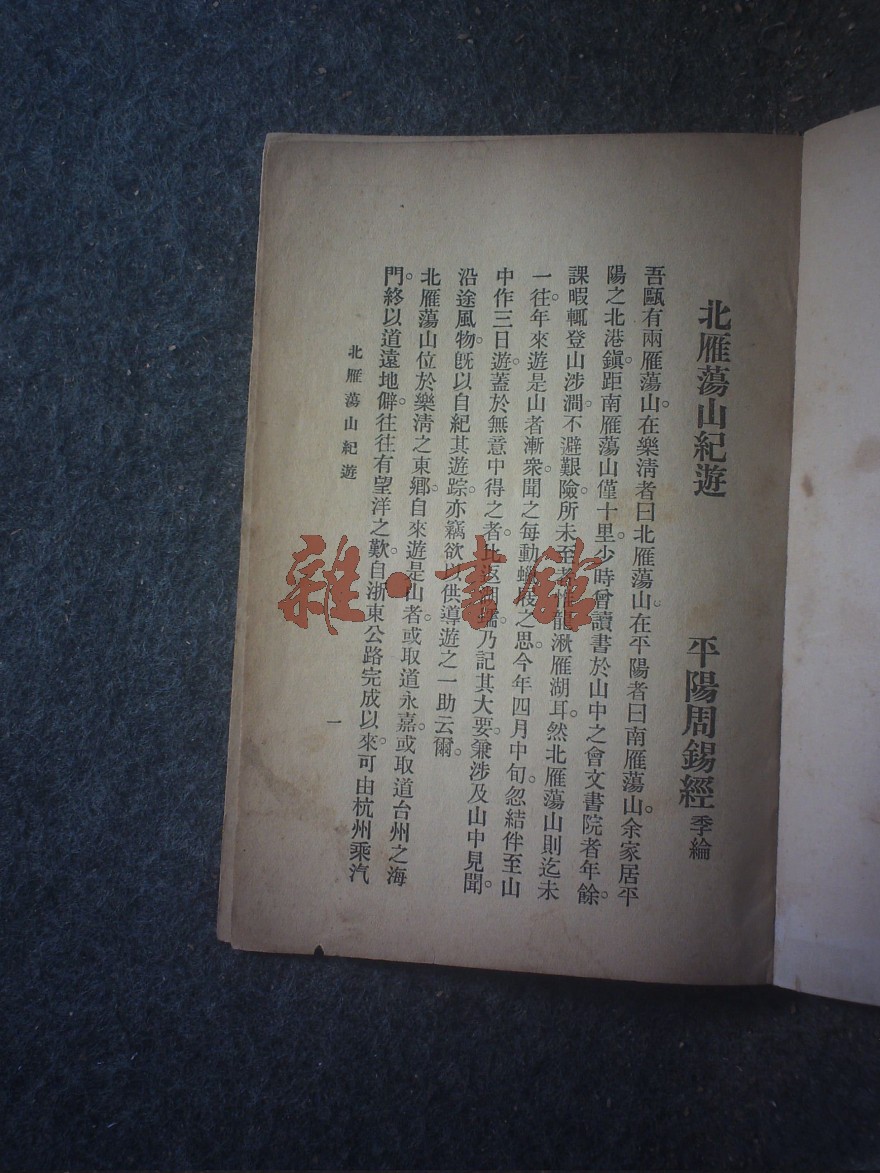 北雁蕩山紀遊
平陽周錫經季綸
吾甌有兩雁蕩山。在樂淸者曰北雁蕩山。在平陽者曰南雁蕩山。余家居平
陽之北港鎭。距南雁蕩山僅十里。少時曾讀書於山中之會文書院者年餘。
課暇輒登山涉澗。不避艱險。所未至者惟龍湫雁湖耳。然北雁蕩山則迄未
一往。年來遊是山者漸衆。聞之每動蠟屐之思。今年四月中旬。忽結伴至山
中作三日遊。蓋於無意中得之者。此返乃記其大要。兼涉及山中見聞。
沿途風物。旣以自紀其遊踪。亦竊欲以供導遊之一助云爾。
北雁蕩山位於樂淸之東鄉。自來遊是山者。或取道永嘉。或取道台州之海
門。終以道遠地僻。往往有望洋之歎。自浙東公路完成以來。可由杭州乘汽
北雁蕩山紀遊
一
雜·書館